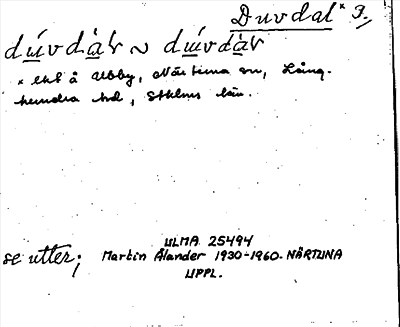 Duvdal × 3.
dúvdàr ~ dúvdàr
× ekl å Ubby, Närtuna sn, Lång-
hundra hd, Sthlms län.
ULMA 25494
se utter; Martin Ålander 1930-1960. NÄRTUNA
UPPL.